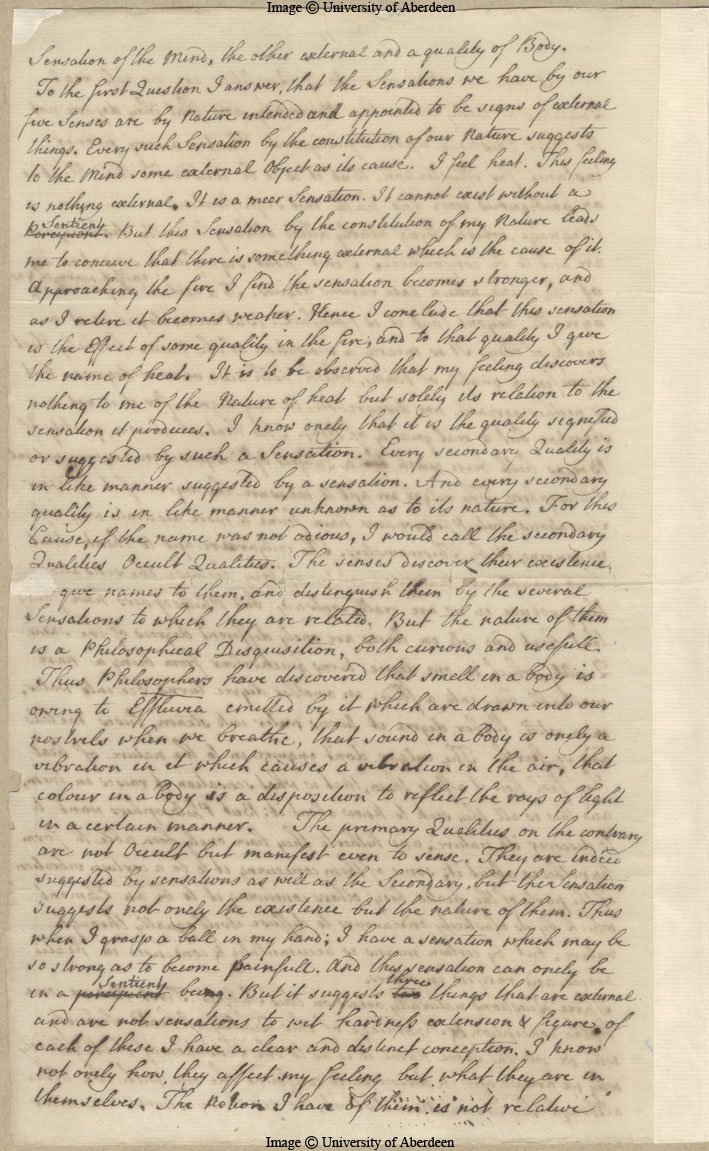 Image © University of Aberdeen
Sensation of the Mind, the other external and a quality of Body.
To the first Question I answer, that the Sensations we have by our
five Senses are by Nature intended and appointed to be signs of external
things. Every such Sensation by the constitution of our Nature suggests
to the Mind some external Object as its cause. I feel heat. This feeling
is nothing external. It is a meer Sensation. It cannot exist without a
Sentient
Percipient. But this Sensation by the constitution of my Nature leads
me to conceive that there is something external which is the cause of it.
Approaching the fire I find the sensation becomes stronger, and
as I retire it becomes weaker. Hence I conclude that this sensation
is the Effect of some quality in the fire, and to that quality I give
the name of heat. It is to be observed that my feeling discovers
nothing to me of the Nature of heat but solely its relation to the
sensation it produces. I know onely that it is the quality signified
or suggested by such a Sensation. Every secondary Quality is
in like manner suggested by a sensation. And every secondary
quality is in like manner unknown as to its nature. For this
Cause, if the name was not odious, I would call the secondary
Qualities Occult Qualities. The senses discover their existence,
give names to them, and distinguish them by the several
Sensations to which they are related. But the nature of them
is a Philosophical Disquisition, both curious and usefull.
Thus Philosophers have discovered that smell in a body is
owing to Effluvia emitted by it which are drawn into our
nostrils when we breathe, that sound in a body is onely a
vibration in it which causes a vibration in the air, that
colour in a body is a disposition to reflect the rays of light
in a certain manner. The primary Qualities on the contrary
are not Occult but manifest even to sense. They are indeed
suggested by sensations as well as the Secondary, but the Sensation
suggests not onely the existence but the nature of them. Thus
when I grasp a ball in my hand; I have a sensation which may be
so strong as to become painfull. And this sensation can onely be
Sentient three
in a percipient being. But it suggests two things that are external
and are not sensations to wit hardness extension & figure, of
each of these I have a clear and distinct conception. I know
not onely how they affect my feeling but what they are in
themselves. The Notion I have of them is not relative
Image © University of Aberdeen